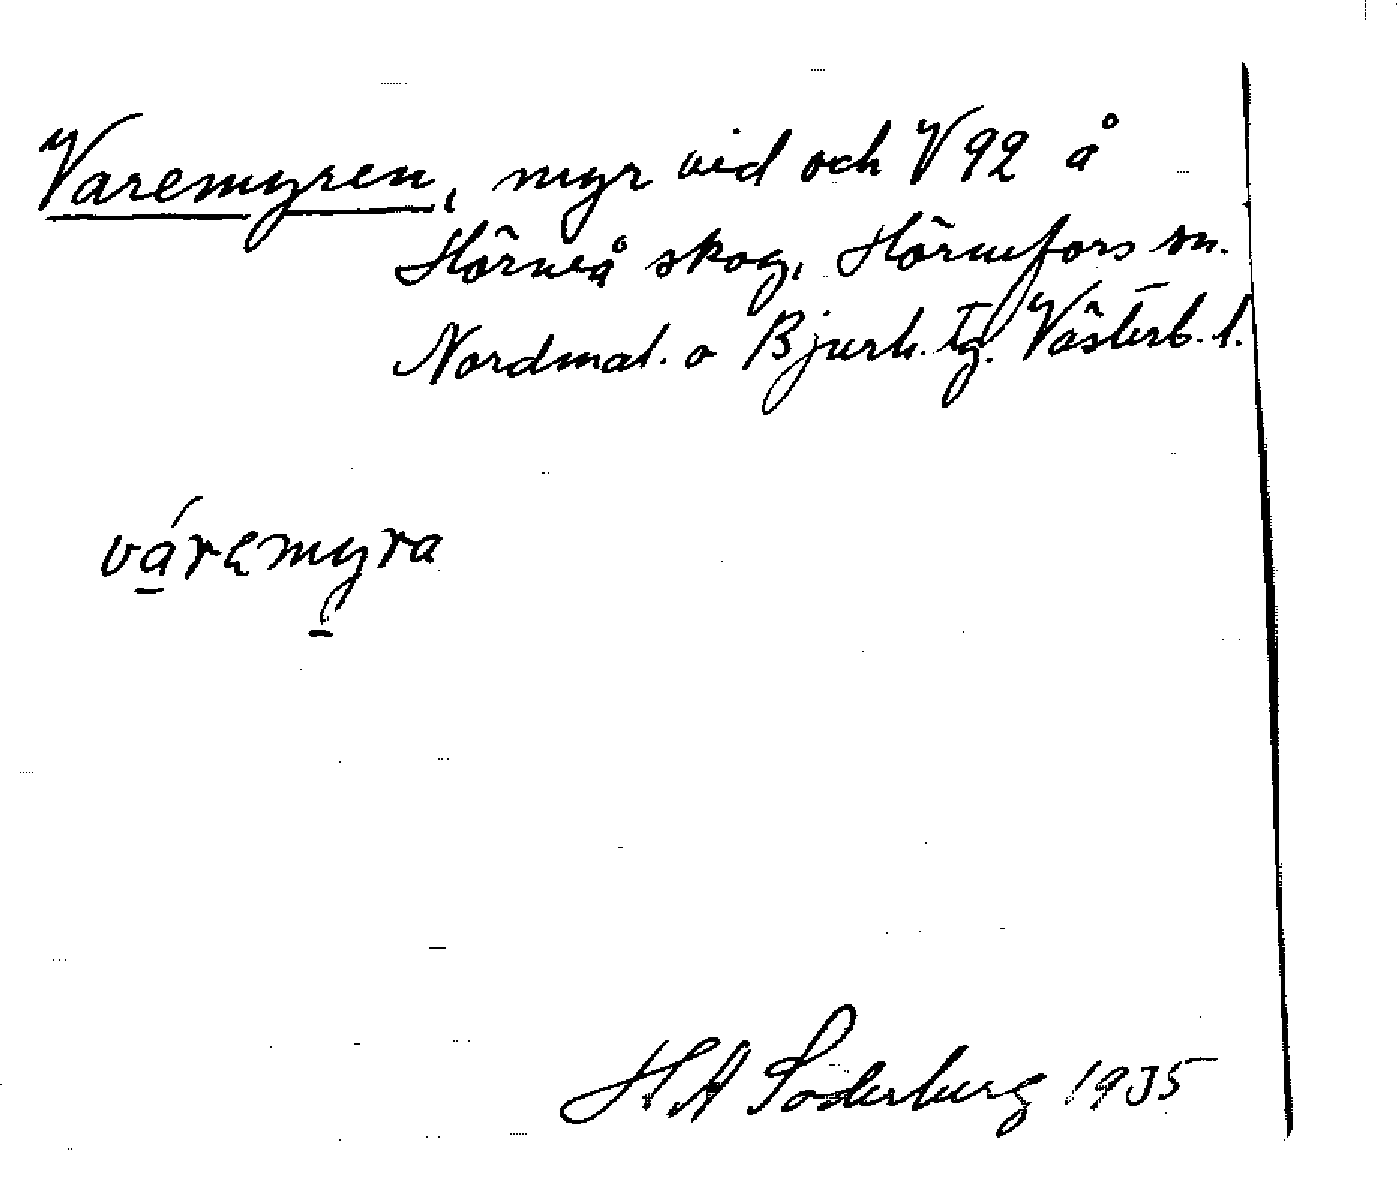 Varemyren, myr vid och V 92 å
Hörneå skog, Hörnefors sn.
Nordmal. o Bjurh. tg. Västerb. l.
váremyra
H A Söderberg 1935